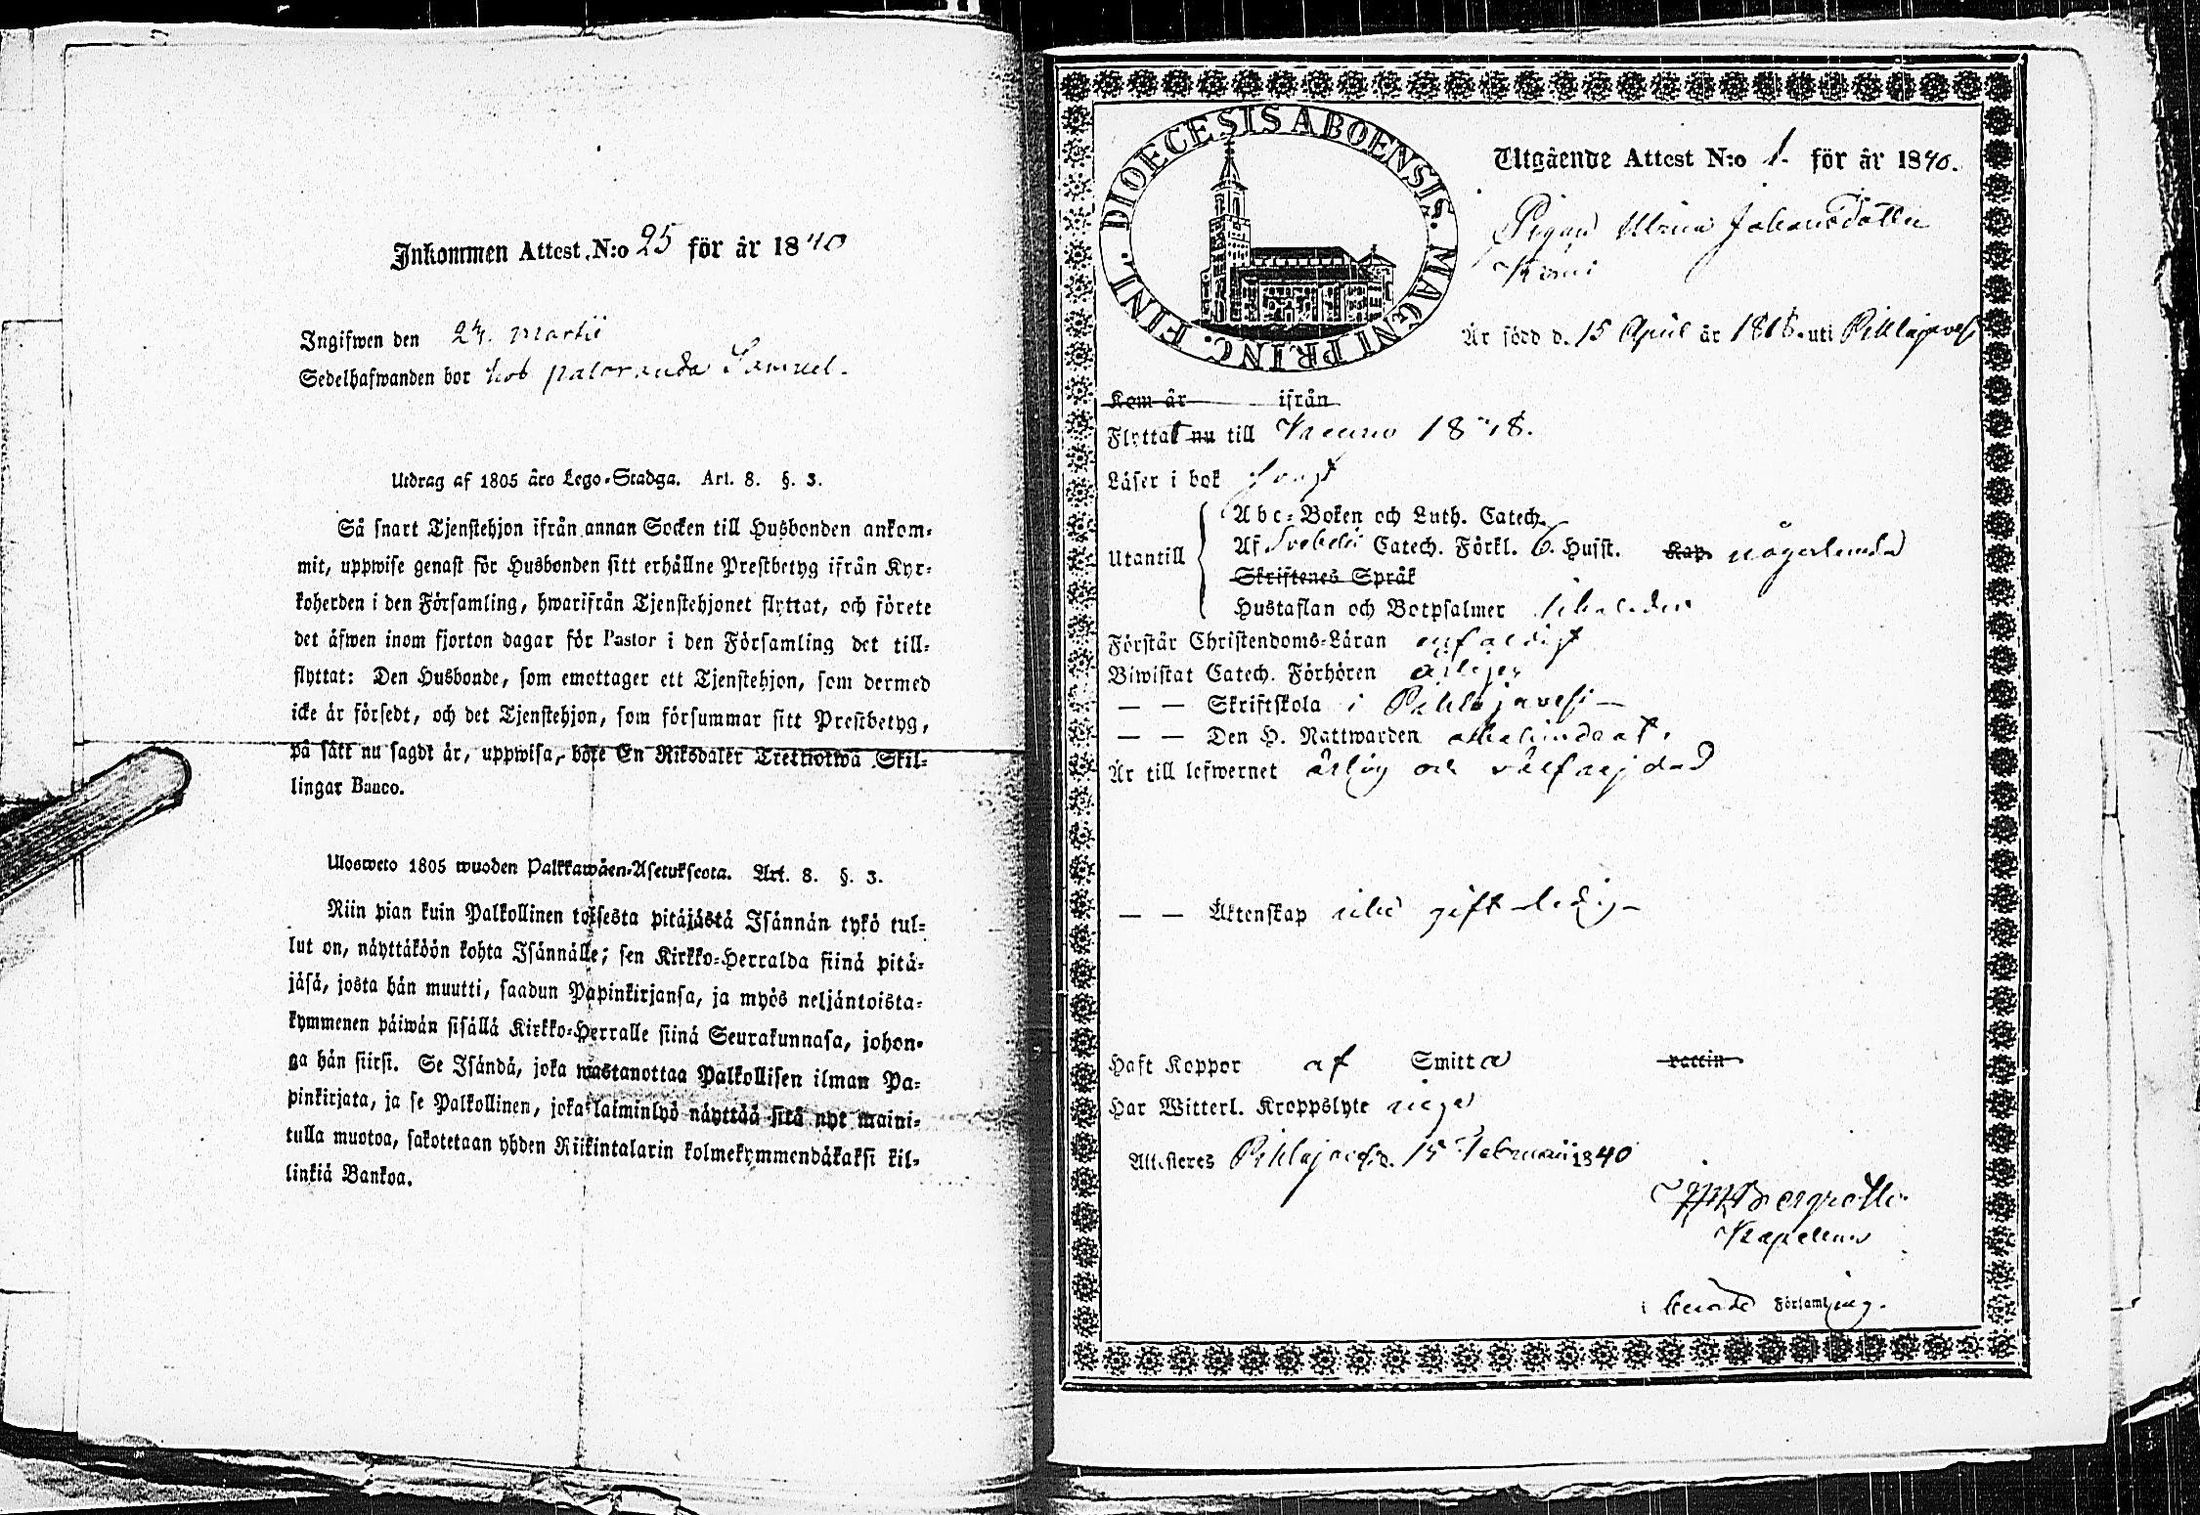 Inkommen Attest N:o 25 för år 1840
Ingifwen den 24. Martii
Sedelhafwanden bor hos Samuel.
Utdrag af 1805 års Lego-Stadga. Art. 8. §. 3.
Så snart Tjenstehjon ifrån annan Socken till Husbonden ankom-
mit, uppwise genast för Husbonden sitt erhållne Prestbetyg ifrån Kyr-
koherden i den Församling, hwarifrån Tjenstehjonet flyttat, och förete
det äfwen inom fjorton dagar för Pastor i den Församling det till-
flyttat: Den Husbonde, som emottager ett Tjenstehjon, som dermed
icke är försedt, och det Tjenstehjon, som försummar sitt Prestbetyg,
på sätt nu sagdt är, uppwisa, böte En Riksdaler Trettiotwå Skil-
lingar Banco.
Ulosweto 1805 wuoden Palkkawäen-Asetuksesta. Art. 8. §. 3.
Niin pian kuin Palkollinen toisesta pitäjästä Isännän tykö tul-
lut on, näyttäköön kohta Isännälle; sen Kirkko-Herralda siinä pitä-
jäsä, josta hän muutti, saadun Papinkirjansa, ja myös neljäntoista-
kymmenen päiwän sisällä Kirkko-Herralle siinä Seurakunnasa, johon-
ga hän siirsi. Se Isändä, joka wastanottaa Palkollisen ilman Pa-
pinkirjata, ja se Palkollinen, joka laiminlyö näyttää sitä nyt maini-
tulla muotoa, sakotetaan yhden Riikintalarin kolmekymmendäkaksi kil-
linkiä Bankoa.
DIOECESIS ABOENSIS. MAGNI PRINC. FINL.
Utgående Attest N:o 1. för år 1840.
Pigan Ulrica Johansdotter
Är född d. 15 April år 1818 uti Pihlajavesi
Kom år ifrån
Flyttat nu till Keuru 18
Läser i bok
Utantill
Abc-Boken och Luth. Catech.
Af Svebelii Catech. Förkl. 6. Husst. Kap. någorlunda
Skriftenes Språk
Hustaflan och Botpsalmer
Förstår Christendoms-Läran enfaldigt
Biwistat Catech. Förhören årligen
— — Skriftskola i Pihlajavesi —
— — Den H. Nattwarden
Är till lefwernet ärlig och välfrejdad
— — Äktenskap icke gift ledig —
Haft Koppor af Smitta vaccin
Har Witterl. Kroppslyte inga
Attesteres Pihlajavesi d. 15 Februarii 1840
Kapellan
i berörde Församling.